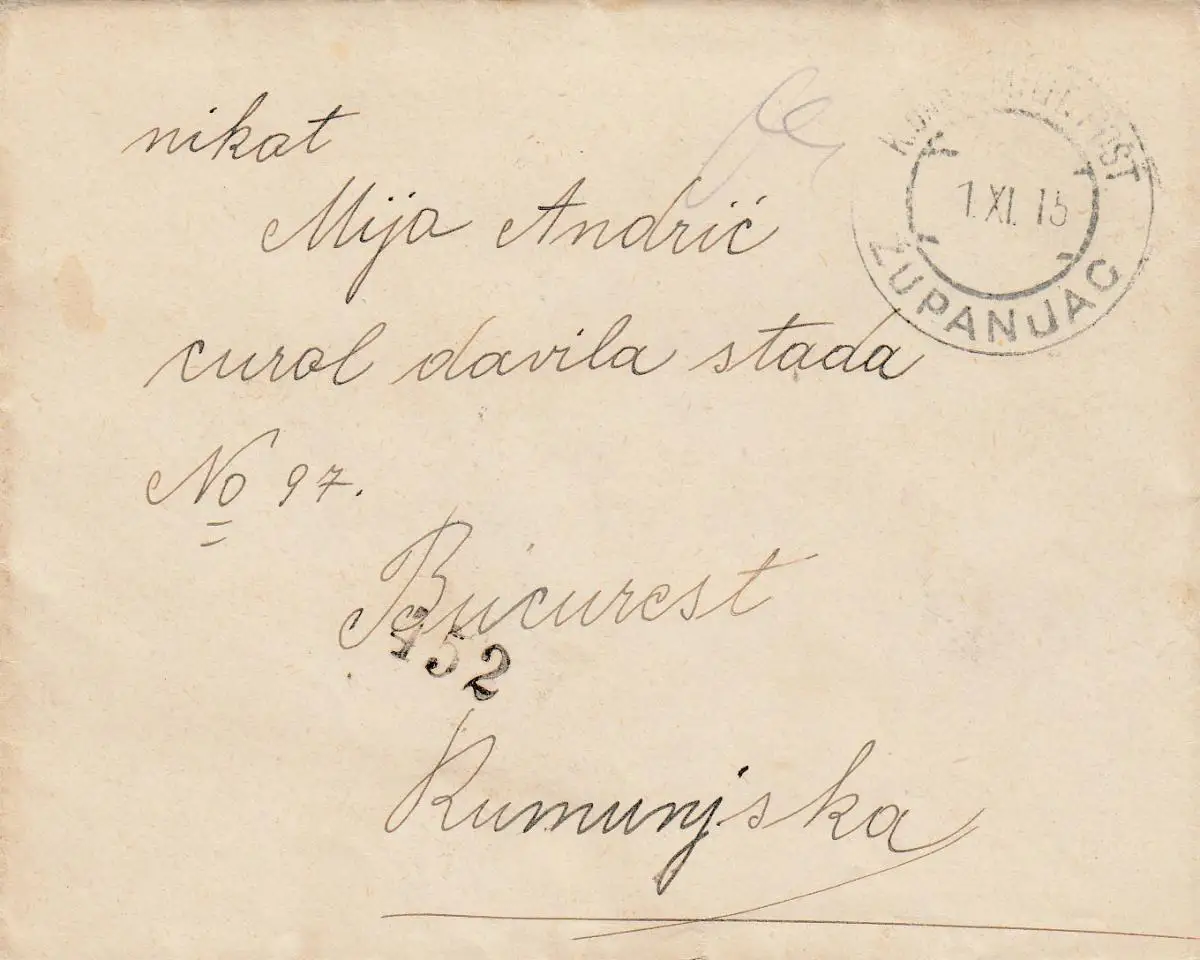 nikat
Mija Andrić
curol davila stada
No 97.
Bucurest
152
Rumunjska
POST
1.XI.15
ŽUPANJAC